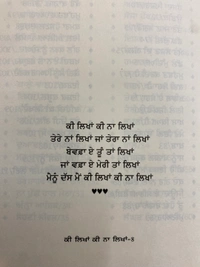 ਕੀ ਲਿਖਾਂ ਕੀ ਨਾ ਲਿਖਾਂ
ਤੇਰੇ ਨਾਂ ਲਿਖਾਂ ਜਾਂ ਤੇਰਾ ਨਾਂ ਲਿਖਾਂ
ਬੇਵਫ਼ਾ ਏ ਤੂੰ ਤਾਂ ਲਿਖਾਂ
ਜਾਂ ਵਫ਼ਾ ਏ ਮੇਰੀ ਤਾਂ ਲਿਖਾਂ
ਮੈਨੂੰ ਦੱਸ ਮੈਂ ਕੀ ਲਿਖਾਂ ਕੀ ਨਾ ਲਿਖਾਂ
♥♥♥
ਕੀ ਲਿਖਾਂ ਕੀ ਨਾ ਲਿਖਾਂ-8